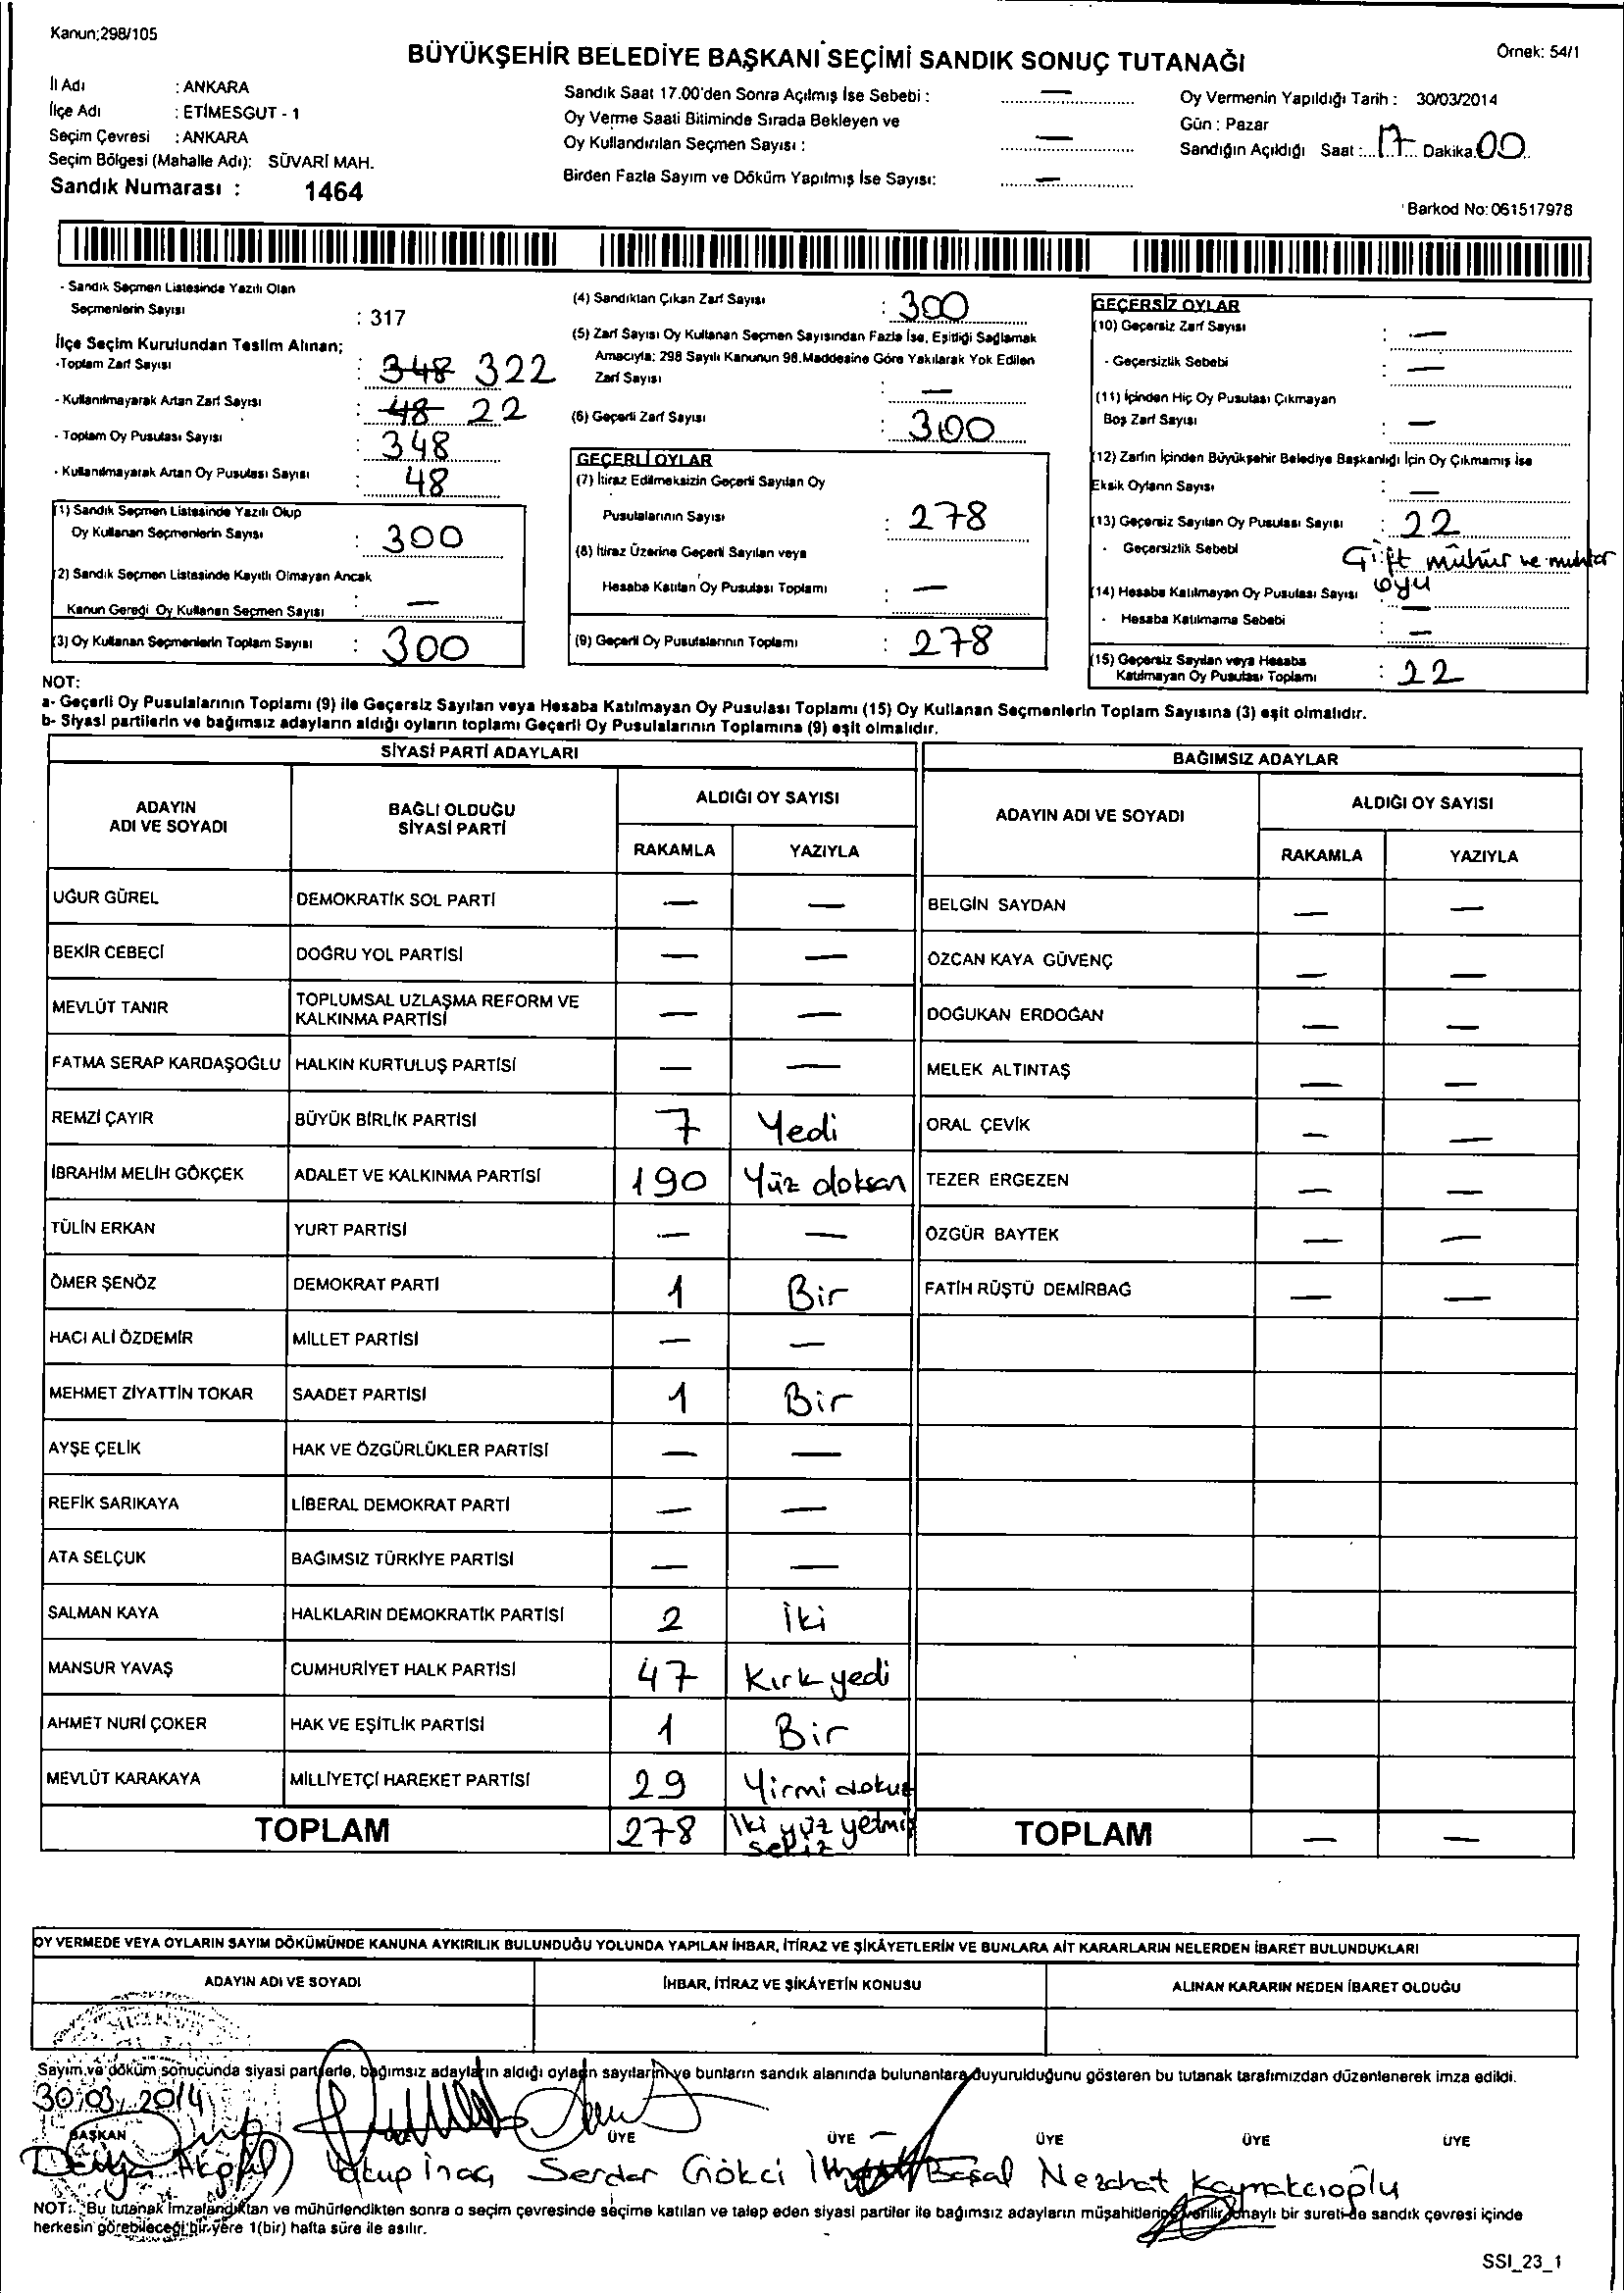 Kanun;298/105
BÜYÜKŞEHİR BELEDİYE BAŞKANI SEÇİMİ SANDIK SONUÇ TUTANAĞI
Örnek: 54/1
İl Adı : ANKARA
İlçe Adı : ETİMESGUT - 1
Seçim Çevresi : ANKARA
Seçim Bölgesi (Mahalle Adı): SÜVARİ MAH.
Sandık Numarası : 1464
Sandık Saat 17.00'den Sonra Açılmış İse Sebebi : —
Oy Verme Saati Bitiminde Sırada Bekleyen ve
Oy Kullandırılan Seçmen Sayısı : —
Birden Fazla Sayım ve Döküm Yapılmış İse Sayısı: —
Oy Vermenin Yapıldığı Tarih : 30/03/2014
Gün : Pazar
Sandığın Açıldığı Saat :...17... Dakika.00..
Barkod No:061517978
- Sandık Seçmen Listesinde Yazılı Olan
Seçmenlerin Sayısı : 317
İlçe Seçim Kurulundan Teslim Alınan;
-Toplam Zarf Sayısı : 348 322
- Kullanılmayarak Artan Zarf Sayısı : 48 22
- Toplam Oy Pusulası Sayısı : 348
- Kullanılmayarak Artan Oy Pusulası Sayısı : 48
(1) Sandık Seçmen Listesinde Yazılı Olup
Oy Kullanan Seçmenlerin Sayısı : 300
(2) Sandık Seçmen Listesinde Kayıtlı Olmayan Ancak
Kanun Gereği Oy Kullanan Seçmen Sayısı : —
(3) Oy Kullanan Seçmenlerin Toplam Sayısı : 300
(4) Sandıktan Çıkan Zarf Sayısı : 300
(5) Zarf Sayısı Oy Kullanan Seçmen Sayısından Fazla İse, Eşitliği Sağlamak
Amacıyla; 298 Sayılı Kanunun 98.Maddesine Göre Yakılarak Yok Edilen
Zarf Sayısı : —
(6) Geçerli Zarf Sayısı : 300
GEÇERLİ OYLAR
(7) İtiraz Edilmeksizin Geçerli Sayılan Oy
Pusulalarının Sayısı : 278
(8) İtiraz Üzerine Geçerli Sayılan veya
Hesaba Katılan Oy Pusulası Toplamı : —
(9) Geçerli Oy Pusulalarının Toplamı : 278
GEÇERSİZ OYLAR
(10) Geçersiz Zarf Sayısı : —
- Geçersizlik Sebebi : —
(11) İçinden Hiç Oy Pusulası Çıkmayan
Boş Zarf Sayısı : —
(12) Zarfın İçinden Büyükşehir Belediye Başkanlığı İçin Oy Çıkmamış ise
Eksik Oyların Sayısı : —
(13) Geçersiz Sayılan Oy Pusulası Sayısı : 22
- Geçersizlik Sebebi Çift mühür ve muhtar
oyu
(14) Hesaba Katılmayan Oy Pusulası Sayısı : —
- Hesaba Katılmama Sebebi : —
(15) Geçersiz Sayılan veya Hesaba
Katılmayan Oy Pusulası Toplamı : 22
NOT:
a- Geçerli Oy Pusulalarının Toplamı (9) ile Geçersiz Sayılan veya Hesaba Katılmayan Oy Pusulası Toplamı (15) Oy Kullanan Seçmenlerin Toplam Sayısına (3) eşit olmalıdır.
b- Siyasi partilerin ve bağımsız adayların aldığı oyların toplamı Geçerli Oy Pusulalarının Toplamına (9) eşit olmalıdır.
SİYASİ PARTİ ADAYLARI
BAĞIMSIZ ADAYLAR
ADAYIN
ADI VE SOYADI
BAĞLI OLDUĞU
SİYASİ PARTİ
ALDIĞI OY SAYISI
RAKAMLA YAZIYLA
ADAYIN ADI VE SOYADI
ALDIĞI OY SAYISI
RAKAMLA YAZIYLA
UĞUR GÜREL DEMOKRATİK SOL PARTİ — — BELGİN SAYDAN — —
BEKİR CEBECİ DOĞRU YOL PARTİSİ — — ÖZCAN KAYA GÜVENÇ — —
MEVLÜT TANIR TOPLUMSAL UZLAŞMA REFORM VE
KALKINMA PARTİSİ — — DOĞUKAN ERDOĞAN — —
FATMA SERAP KARDAŞOĞLU HALKIN KURTULUŞ PARTİSİ — — MELEK ALTINTAŞ — —
REMZİ ÇAYIR BÜYÜK BİRLİK PARTİSİ 7 Yedi ORAL ÇEVİK — —
İBRAHİM MELİH GÖKÇEK ADALET VE KALKINMA PARTİSİ 190 Yüz doksan TEZER ERGEZEN — —
TÜLİN ERKAN YURT PARTİSİ — — ÖZGÜR BAYTEK — —
ÖMER ŞENÖZ DEMOKRAT PARTİ 1 Bir FATİH RÜŞTÜ DEMİRBAĞ — —
HACI ALİ ÖZDEMİR MİLLET PARTİSİ — —
MEHMET ZİYATTİN TOKAR SAADET PARTİSİ 1 Bir
AYŞE ÇELİK HAK VE ÖZGÜRLÜKLER PARTİSİ — —
REFİK SARIKAYA LİBERAL DEMOKRAT PARTİ — —
ATA SELÇUK BAĞIMSIZ TÜRKİYE PARTİSİ — —
SALMAN KAYA HALKLARIN DEMOKRATİK PARTİSİ 2 İki
MANSUR YAVAŞ CUMHURİYET HALK PARTİSİ 47 Kırk yedi
AHMET NURİ ÇOKER HAK VE EŞİTLİK PARTİSİ 1 Bir
MEVLÜT KARAKAYA MİLLİYETÇİ HAREKET PARTİSİ 29 Yirmi dokuz
TOPLAM 278 İki yüz yetmiş
sekiz
TOPLAM — —
OY VERMEDE VEYA OYLARIN SAYIM DÖKÜMÜNDE KANUNA AYKIRILIK BULUNDUĞU YOLUNDA YAPILAN İHBAR, İTİRAZ VE ŞİKÂYETLERİN VE BUNLARA AİT KARARLARIN NELERDEN İBARET BULUNDUKLARI
ADAYIN ADI VE SOYADI İHBAR, İTİRAZ VE ŞİKÂYETİN KONUSU ALINAN KARARIN NEDEN İBARET OLDUĞU
Sayım ve döküm sonucunda siyasi partilerle, bağımsız adayların aldığı oyların sayılarını ve bunların sandık alanında bulunanlara duyurulduğunu gösteren bu tutanak tarafımızdan düzenlenerek imza edildi.
30/03/2014
BAŞKAN ÜYE ÜYE ÜYE ÜYE ÜYE
Derya Yakup İnaç Serdar Gökci Başal Nezahat Kaymakcıoğlu
NOT: Bu tutanak imzalandıktan ve mühürlendikten sonra o seçim çevresinde seçime katılan ve talep eden siyasi partiler ile bağımsız adayların müşahitlerine verilir. Onaylı bir sureti de sandık çevresi içinde
herkesin görebileceği bir yere 1(bir) hafta süre ile asılır.
SSI_23_1